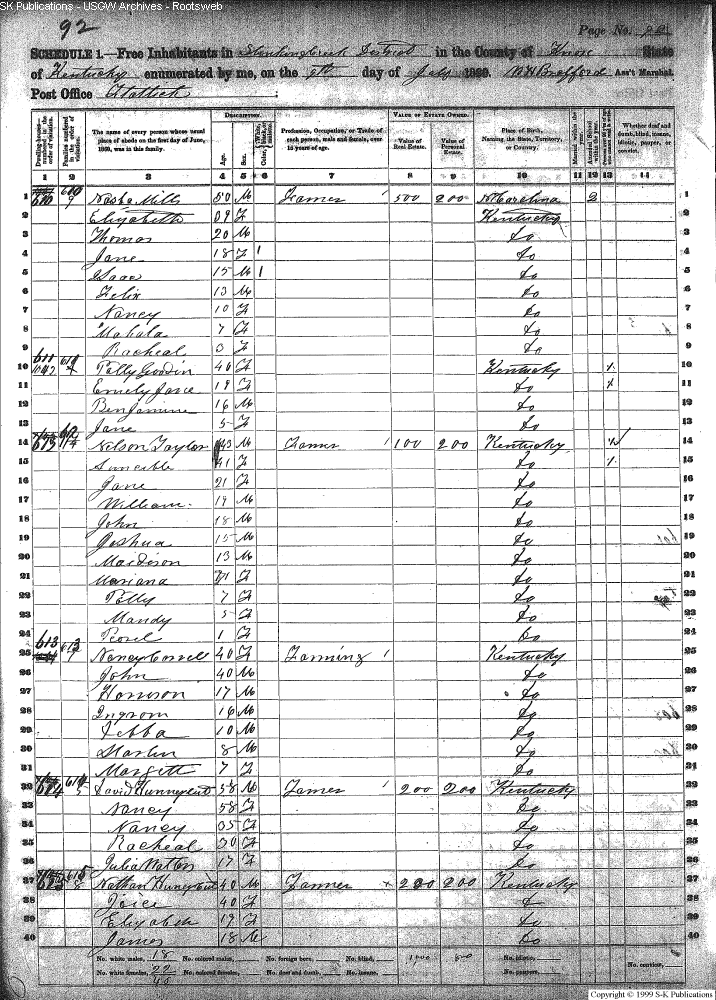 SK Publications - USGW Archives - Rootsweb
92
Page No.
SCHEDULE 1.—Free Inhabitants in Stinking Creek District in the County of Knox State
of Kentucky enumerated by me, on the day of July 1860. Ass't Marshal.
Post Office
Dwelling-house—numbered in the order of visitation.
Families numbered in the order of visitation.
The name of every person whose usual place of abode on the first day of June, 1860, was in this family.
DESCRIPTION.
Age.
Sex.
Color, White, black, or mulatto.
Profession, Occupation, or Trade of each person, male and female, over 15 years of age.
VALUE OF ESTATE OWNED.
Value of Real Estate.
Value of Personal Estate.
Place of Birth, Naming the State, Territory, or Country.
Married within the year.
Attended School within the year.
Whether deaf and dumb, blind, insane, idiotic, pauper, or convict.
1 2 3 4 5 6 7 8 9 10 11 12 13 14
1 610 610 Mills 50 M Farmer 500 200 N Carolina 2 1
2 Elizabeth 39 F Kentucky 2
3 Thomas 20 M do 3
4 Jane 18 F 1 do 4
5 Isaac 15 M 1 do 5
6 Felix 13 M do 6
7 Nancy 10 F do 7
8 Mahala 7 F do 8
9 Racheal 3 F do 9
10 611 Polly Goodin 40 F Kentucky 10
11 Emely Jane 19 F do 11
12 Benjamine 16 M do 12
13 Jane 5 F do 13
14 612 Nelson Taylor 43 M Farmer 100 200 Kentucky 14
15 41 F do 15
16 Jane 21 F do 16
17 William 19 M do 17
18 John 18 M do 18
19 Joshua 15 M do 19
20 Maidison 13 M do 20
21 Mariana F do 21
22 Polly 7 F do 22
23 Mandy 5 F do 23
24 1 F do 24
25 613 613 Nancy 40 F Farming Kentucky 25
26 John 40 M do 26
27 Harrison 17 M do 27
28 Ingrom 16 M do 28
29 10 M do 29
30 8 M do 30
31 Margett 7 F do 31
32 614 614 David Hunneycut 58 M Farmer 200 200 Kentucky 32
33 Nancy 58 F do 33
34 Nancy 35 F do 34
35 Racheal 30 F do 35
36 Julia 17 F do 36
37 615 Nathan Huneycut 40 M Farmer 200 200 Kentucky 37
38 40 F do 38
39 Elizabeth 19 F do 39
40 James 18 M do 40
No. white males, 18 No. colored males, No. foreign born, No. blind, No. idiotic, No. convicts,
No. white females, 22 No. colored females, No. deaf and dumb, No. insane, No. paupers,
40
Copyright © 1999 S-K Publications